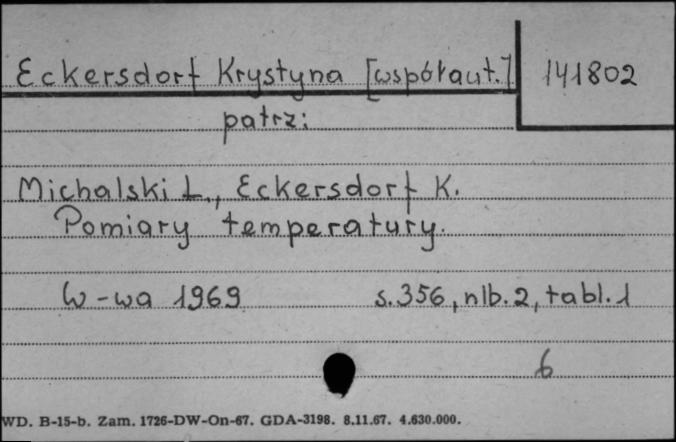 Eckersdorf Krystyna [współaut.] 141802
patrz:
Michalski L., Eckersdorf K.
Pomiary temperatury.
W-wa 1969 s. 356, nlb. 2, tabl. 1
6
WD. B-15-b. Zam. 1726-DW-On-67. GDA-3198. 8.11.67. 4.630.000.